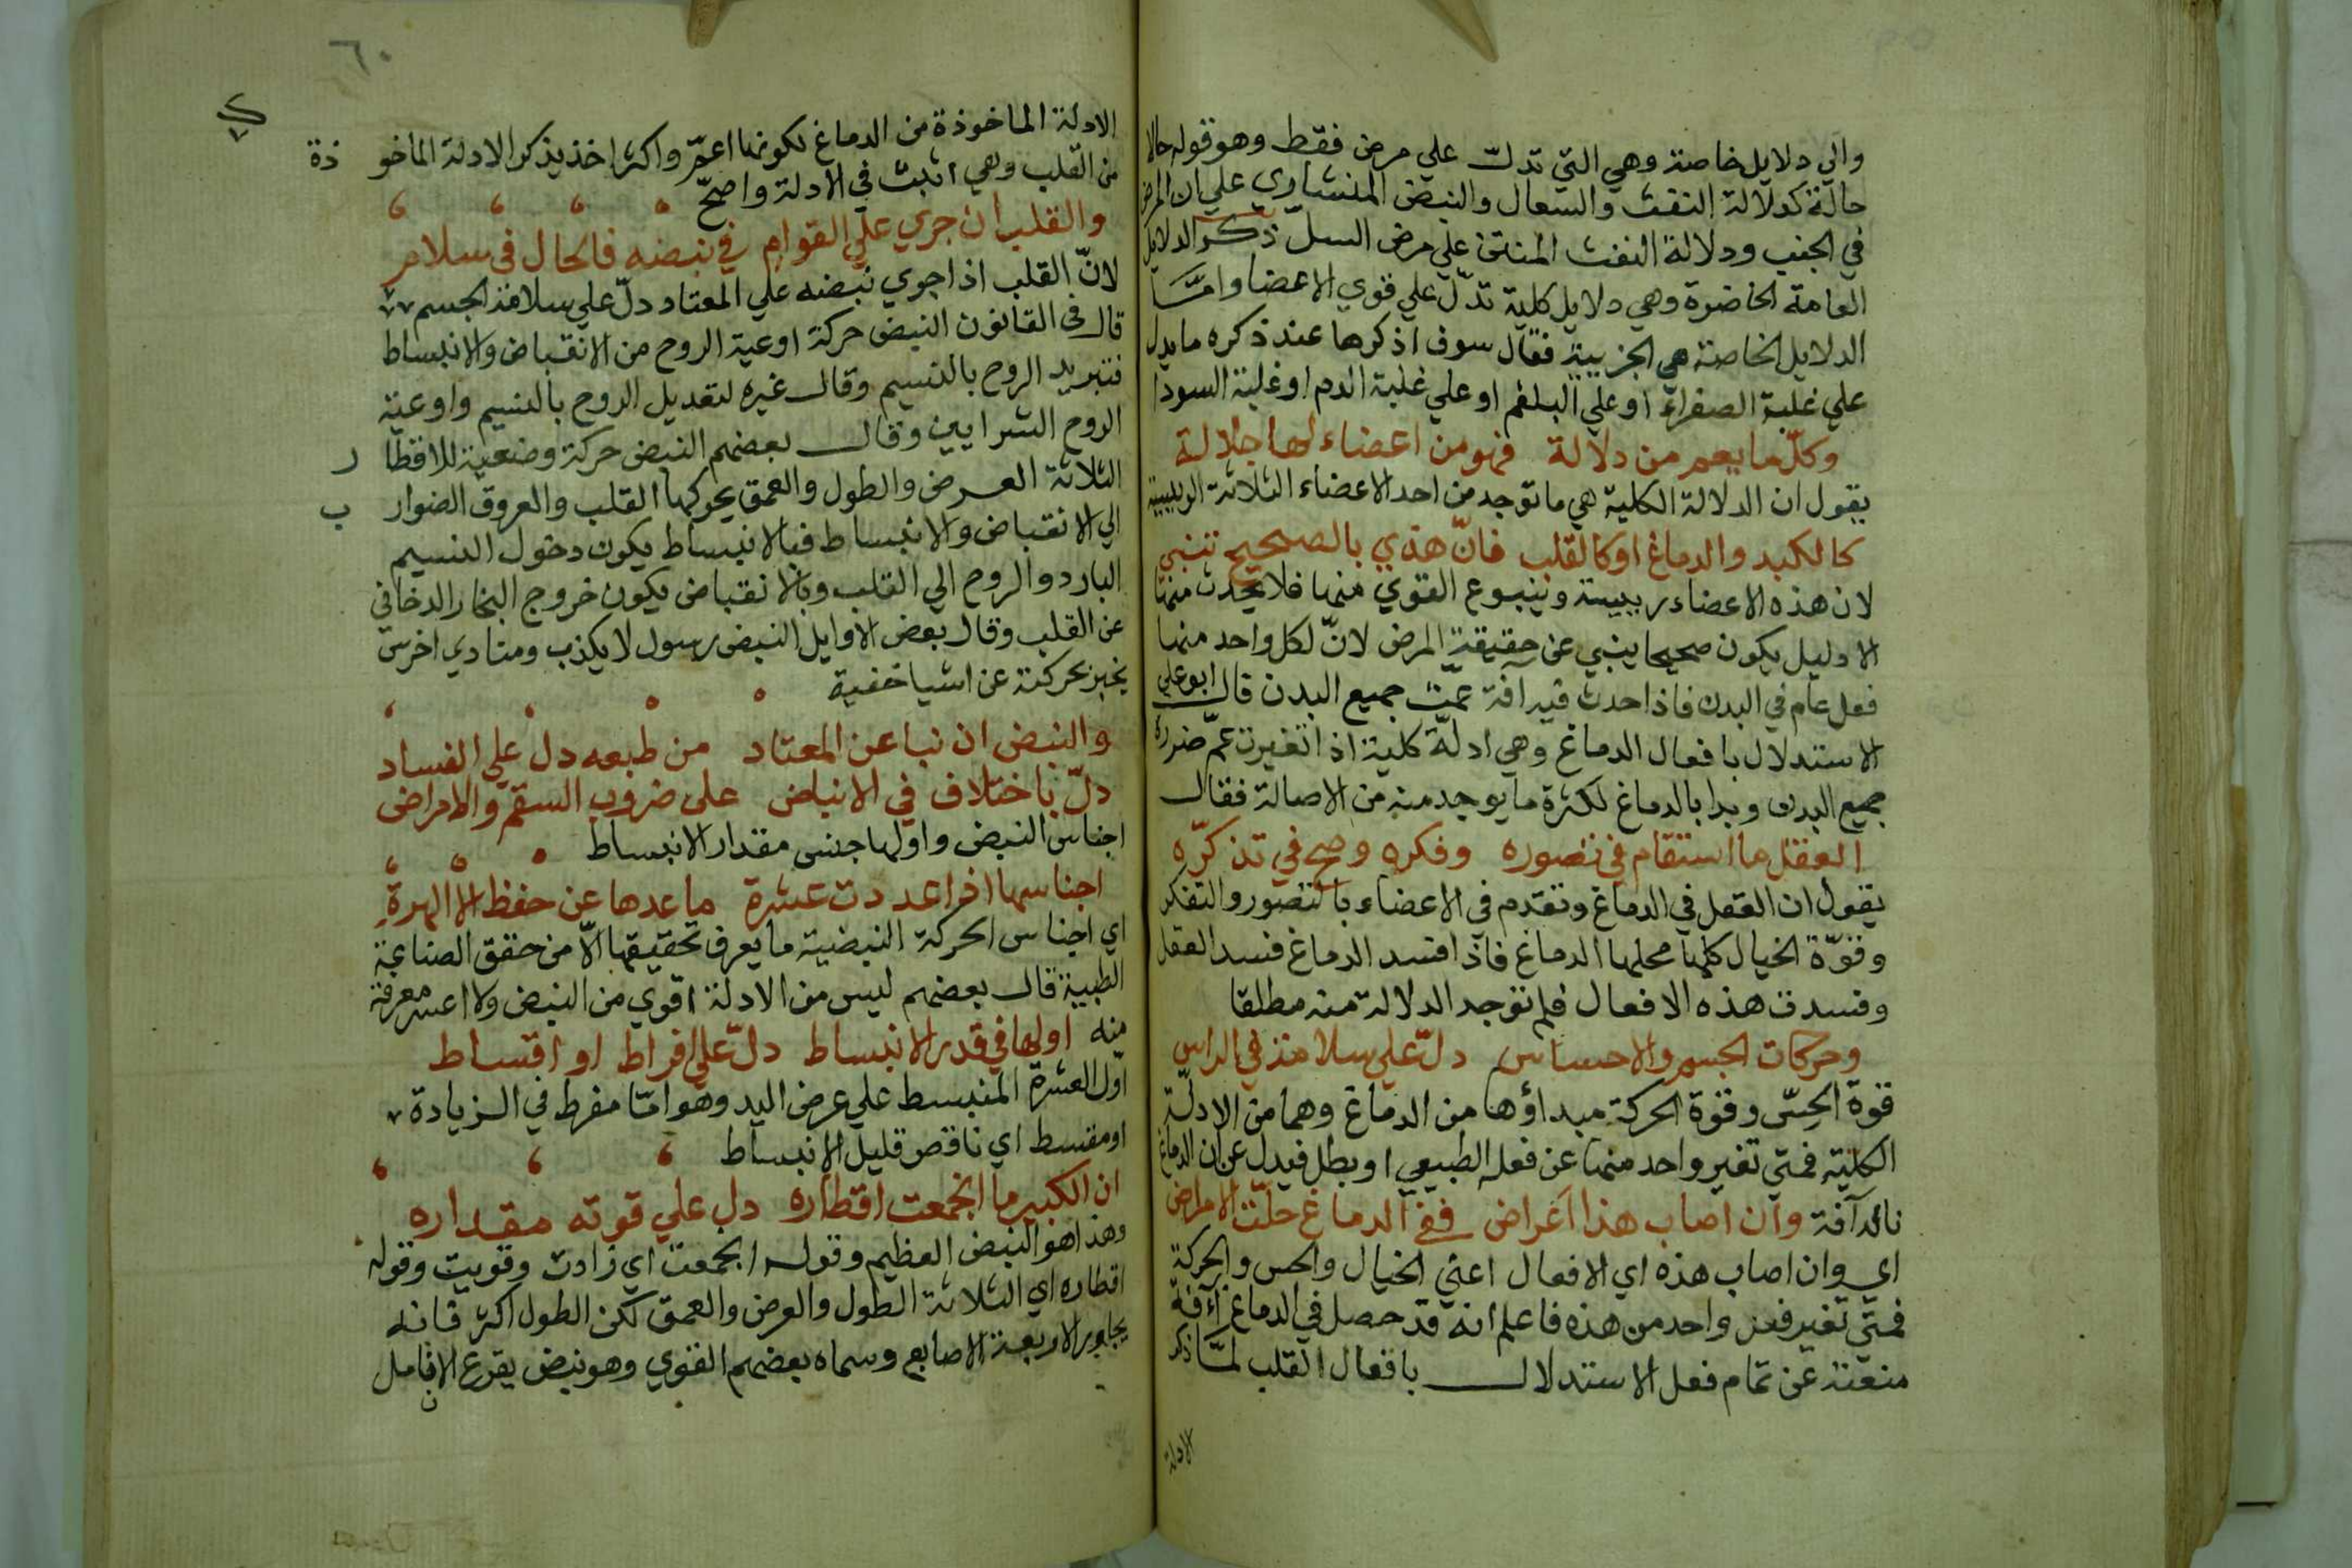 والي دلايل خاصة وهي التي تدل علي مرض فقط وهو قوله حالا
حالة كدلالة النفث والسعال والنبض المنشاري علي ان المرض
في الجنب ودلالة النفث المنتن علي مرض السل ذكر الدلايل
العامة الحاضرة وهي دلايل كلية تدل علي قوي الاعضا وامّا
الدلايل الخاصة هي الجزيية فقال سوف اذكرها عند ذكره ما يدل
علي غلبة الصفراء او علي البلغم او علي غلبة الدم او غلبة السودا
وكلّ ما يعم من دلالة فهو من اعضاء لها جلالة
يقول ان الدلالة الكلية هي ما توجد من احد الاعضاء الثلاثة الرييسة
كالكبد والدماغ او كالقلب فانّ هذي بالصحيح تنبي
لان هذه الاعضاء رييسة وينبوع القوي منها فلا يحدث منها
الا دليل يكون صحيحا ينبي عن حقيقة المرض لانّ لكل واحد منها
فعل عام في البدن فاذا حدث فيه افة عمّت جميع البدن قال ابو علي
الاستدلال بافعال الدماغ وهي ادلّة كلية اذا تغيرت عمّ ضرره
جميع البدن وبدا بالدماغ لكثرة ما يوجد منه من الاصالة فقال
العقل ما استقام في تصوره وفكره وصح في تذكّره
يقول ان العقل في الدماغ وتقدم في الاعضاء بالتصور والتفكر
وقوّة الخيال كلها محلها الدماغ فاذا فسد الدماغ فسد العقل
وفسدت هذه الافعال فلم توجد الدلالة منه مطلقا
وحركات الجسم والاحساس دلّ علي سلامة في الراس
قوة الحسّ وقوة الحركة مبداؤها من الدماغ وهما من الادلّة
الكلية فمتي تغير واحد منها عن فعله الطبيعي او بطل فيدل عن ان الدماغ
نالته آفة وان اصاب هذا اعراض ففي الدماغ حلّت الامراض
اي وان اصاب هذه اي الافعال اعني الخيال والحس والحركة
فمتي تغير فعل واحد من هذه فاعلم انه قد حصل في الدماغ آفة
منعته عن تمام فعل الاستدلال بافعال القلب لمّا ذكر
الادلة
٦٠
الادلة الماخوذة من الدماغ لكونها اعمّ واكثر اخذ يذكر الادلة الماخو ذة
من القلب وهي اثبت في الادلة واصحّ
والقلب ان جري علي القوام في نبضه فالحال في سلام
لانّ القلب اذا جري نبضه علي المعتاد دلّ علي سلامة الجسم
قال في القانون النبض حركة اوعية الروح من الانقباض والانبساط
فتبريد الروح بالنسيم وقال غيره لتعديل الروح بالنسيم واوعية
الروح الشرايين وقال بعضهم النبض حركة وضعية للاقطا ر
الثلاثة العرض والطول والعمق يحركها القلب والعروق الضوار ب
الي الانقباض والانبساط فبالانبساط يكون دخول النسيم
البارد والروح الي القلب وبالانقباض يكون خروج البخار الدخاني
عن القلب وقال بعض الاوايل النبض رسول لا يكذب ومنادي اخرس
يخبر بحركته عن اشيا خفية
والنبض ان نبا عن المعتاد من طبعه دل علي الفساد
دلّ باختلاف في الانباض علي ضروب السقم والامراض
اجناس النبض واولها جنس مقدار الانبساط
اجناسها اذا عددت عشرة ما عدها عن حفظ الا المهرة
اي اجناس الحركة النبضية ما يعرف تحقيقها الّا من حقق الصناعة
الطبية قال بعضهم ليس من الادلة اقوي من النبض ولا اعسر معرفة
منه اولها في قدر الانبساط دلّ علي افراط او اقساط
اول العشرة المنبسط علي عرض اليد وهو امّا مفرط في الزيادة
او مقسط اي ناقص قليل الانبساط
ان الكبير ما انجمعت اقطاره دل علي قوته مقداره
وهذا هو النبض العظيم وقوله انجمعت اي زادت وقويت وقوله
اقطاره اي الثلاثة الطول والعرض والعمق لكن الطول اكثر فانه
يجاوز الاربعة الاصابع وسماه بعضهم القوي وهو نبض يقرع الانامل